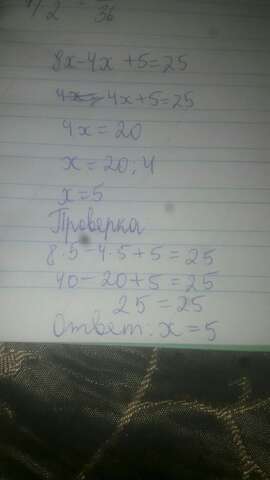 36
8x-4x+5=25
4x+5=25
4x=20
x=20:4
x=5
Проверка
8·5-4·5+5=25
40-20+5=25
25=25
Ответ: x=5